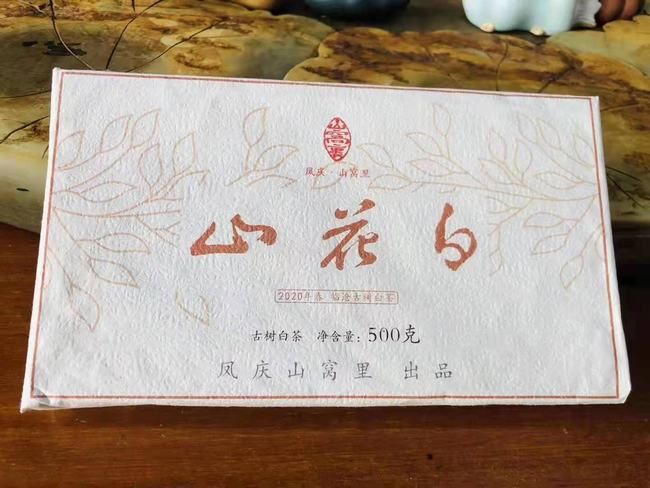 凤庆·山窝里
山花白
2020年春 临沧古树白茶
古树白茶 净含量：500克
凤庆山窝里 出品